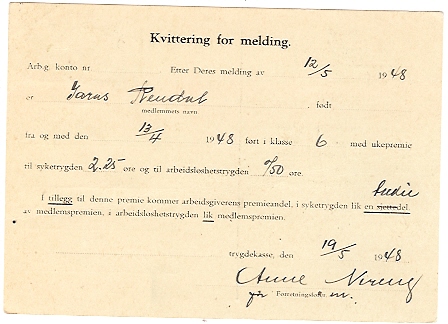 Kvittering for melding.
Arb.g. konto nr. Etter Deres melding av 12/5 1948
er
medlemmets navn , født
fra og med den 13/4 1948 ført i klasse 6 med ukepremie
til syketrygden 2.25 øre og til arbeidsløshetstrygden 0/50 øre.
I tillegg til denne premie kommer arbeidsgiverens premieandel, i syketrygden lik en sjettedel
av medlemspremien, i arbeidsløshetstrygden lik medlemspremien.
trygdekasse, den 19/5 1948
Anne
Forretningsfører